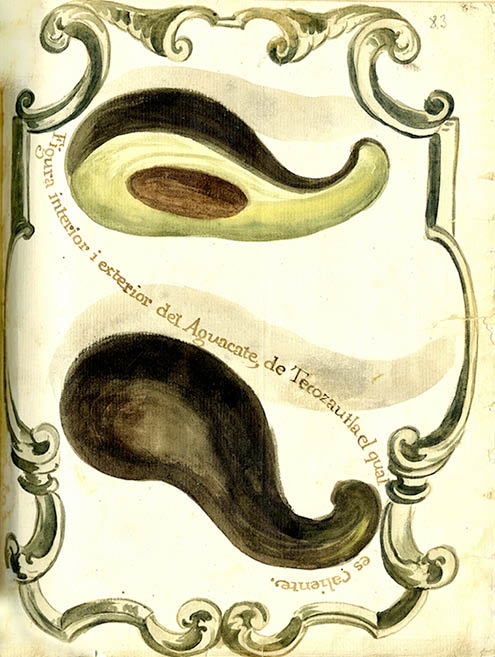 83
Figura interior i exterior del Aguacate, de Tecozautla el qual
es Caliente.